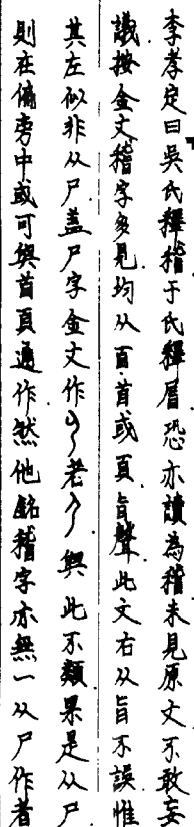 李孝定曰吳氏釋稽于氏釋眉恐亦讀為稽未見原文不敢妄
議按金文稽字多見均从百首或頁旨聲此文右从旨不誤惟
其左似非从尸蓋尸字金文作 若 與此不類果是从尸
則在偏旁中或可與首頁通作然他銘稽字亦無一从尸作者